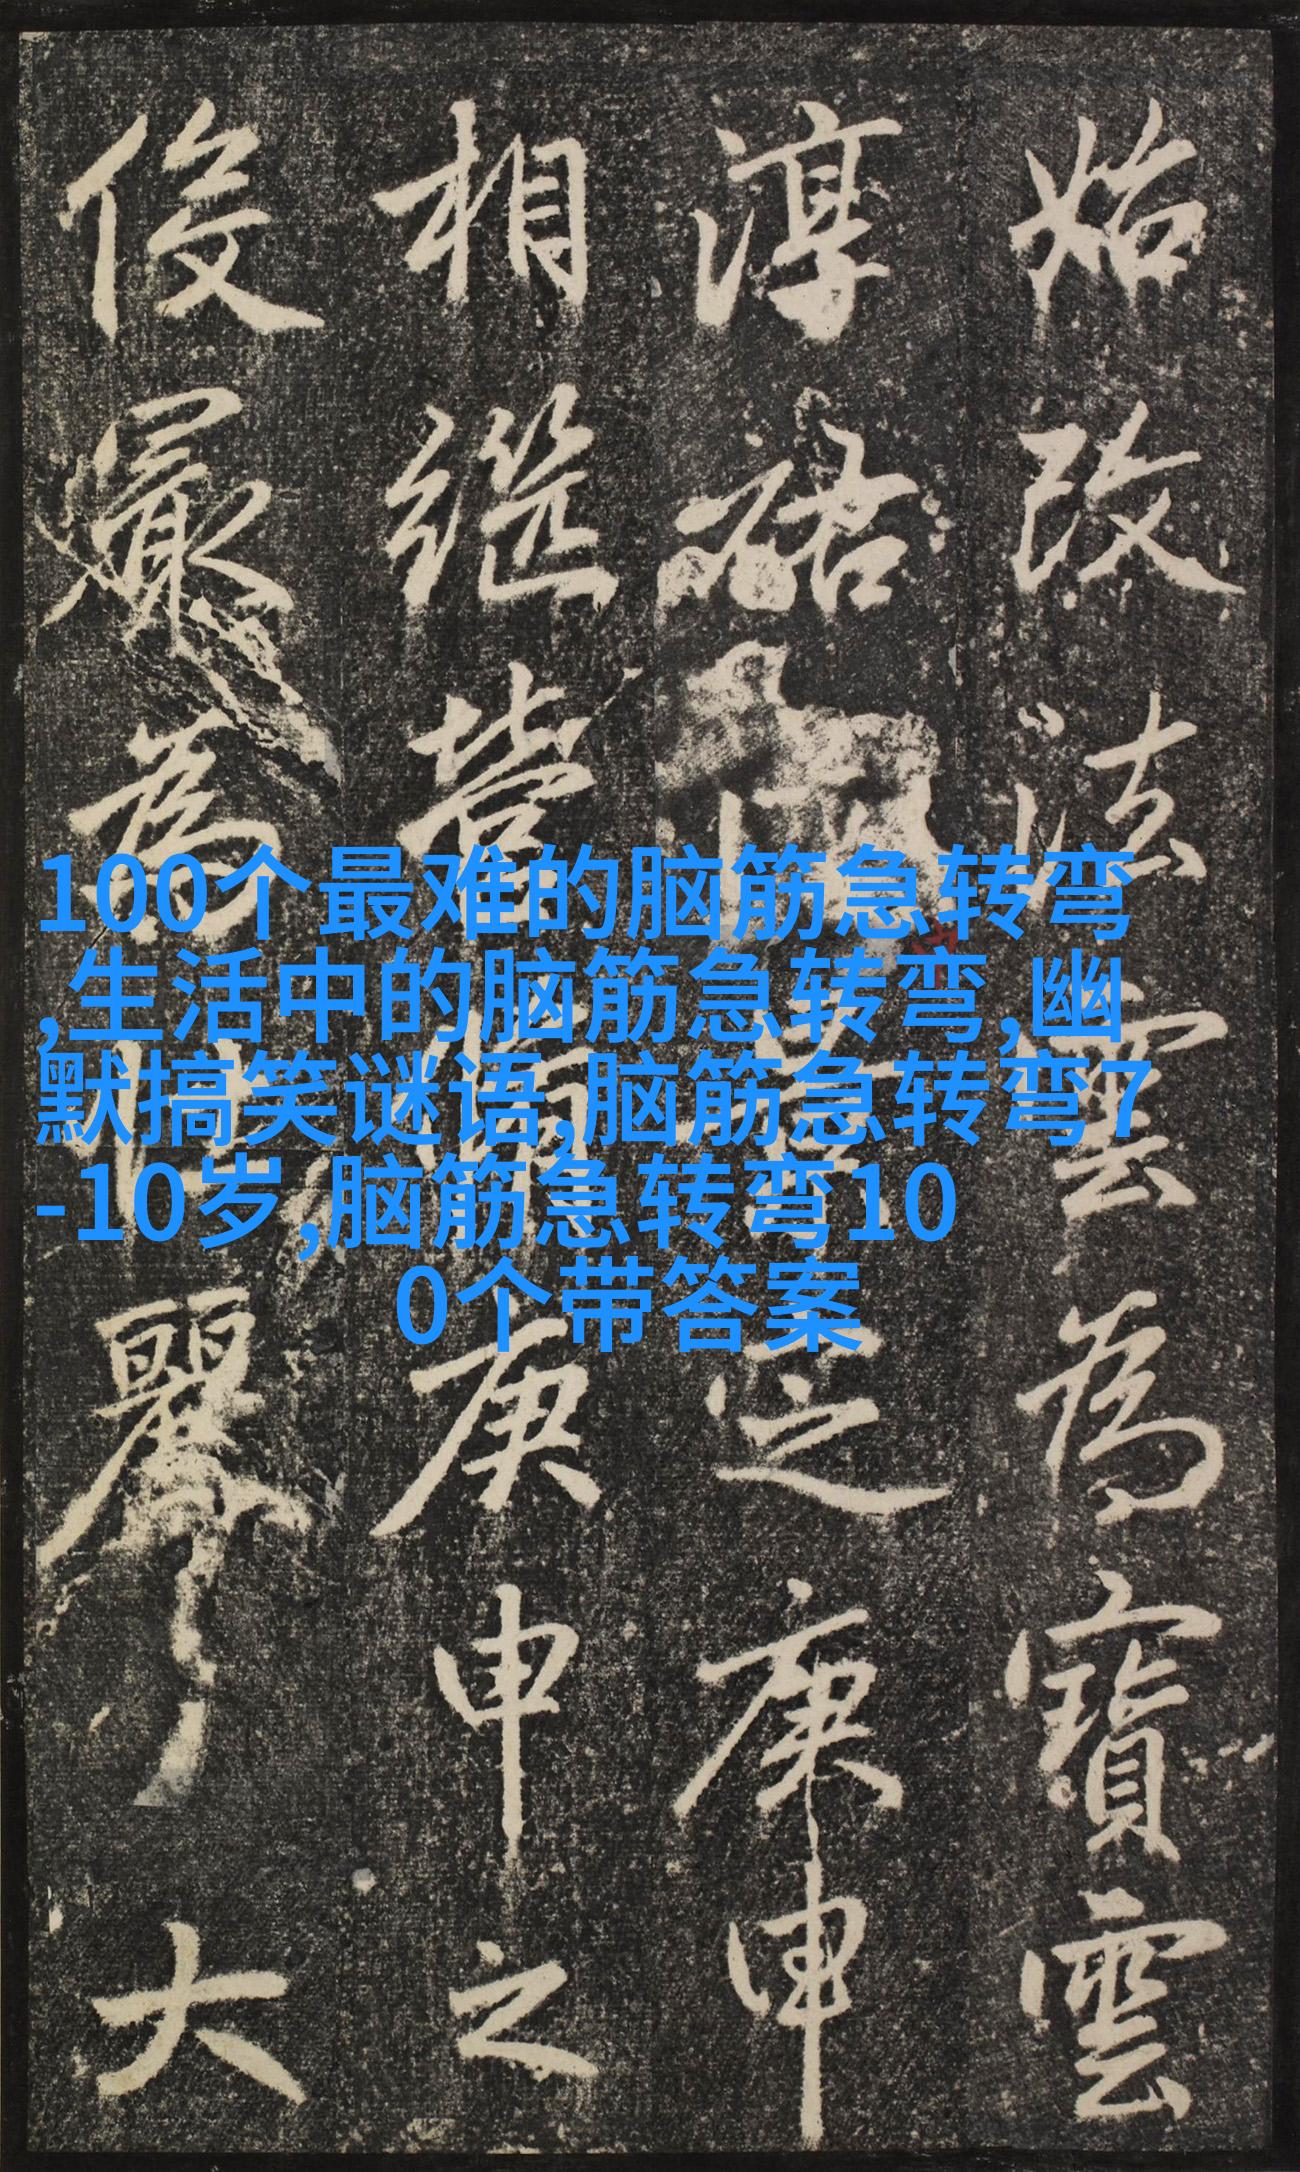 始改法雲為寶雲
淳祐之庚申
相継營庚申之
後最為壯麗大
100个最难的脑筋急转弯
,生活中的脑筋急转弯,幽
默搞笑谜语,脑筋急转弯7
-10岁,脑筋急转弯10
0个带答案